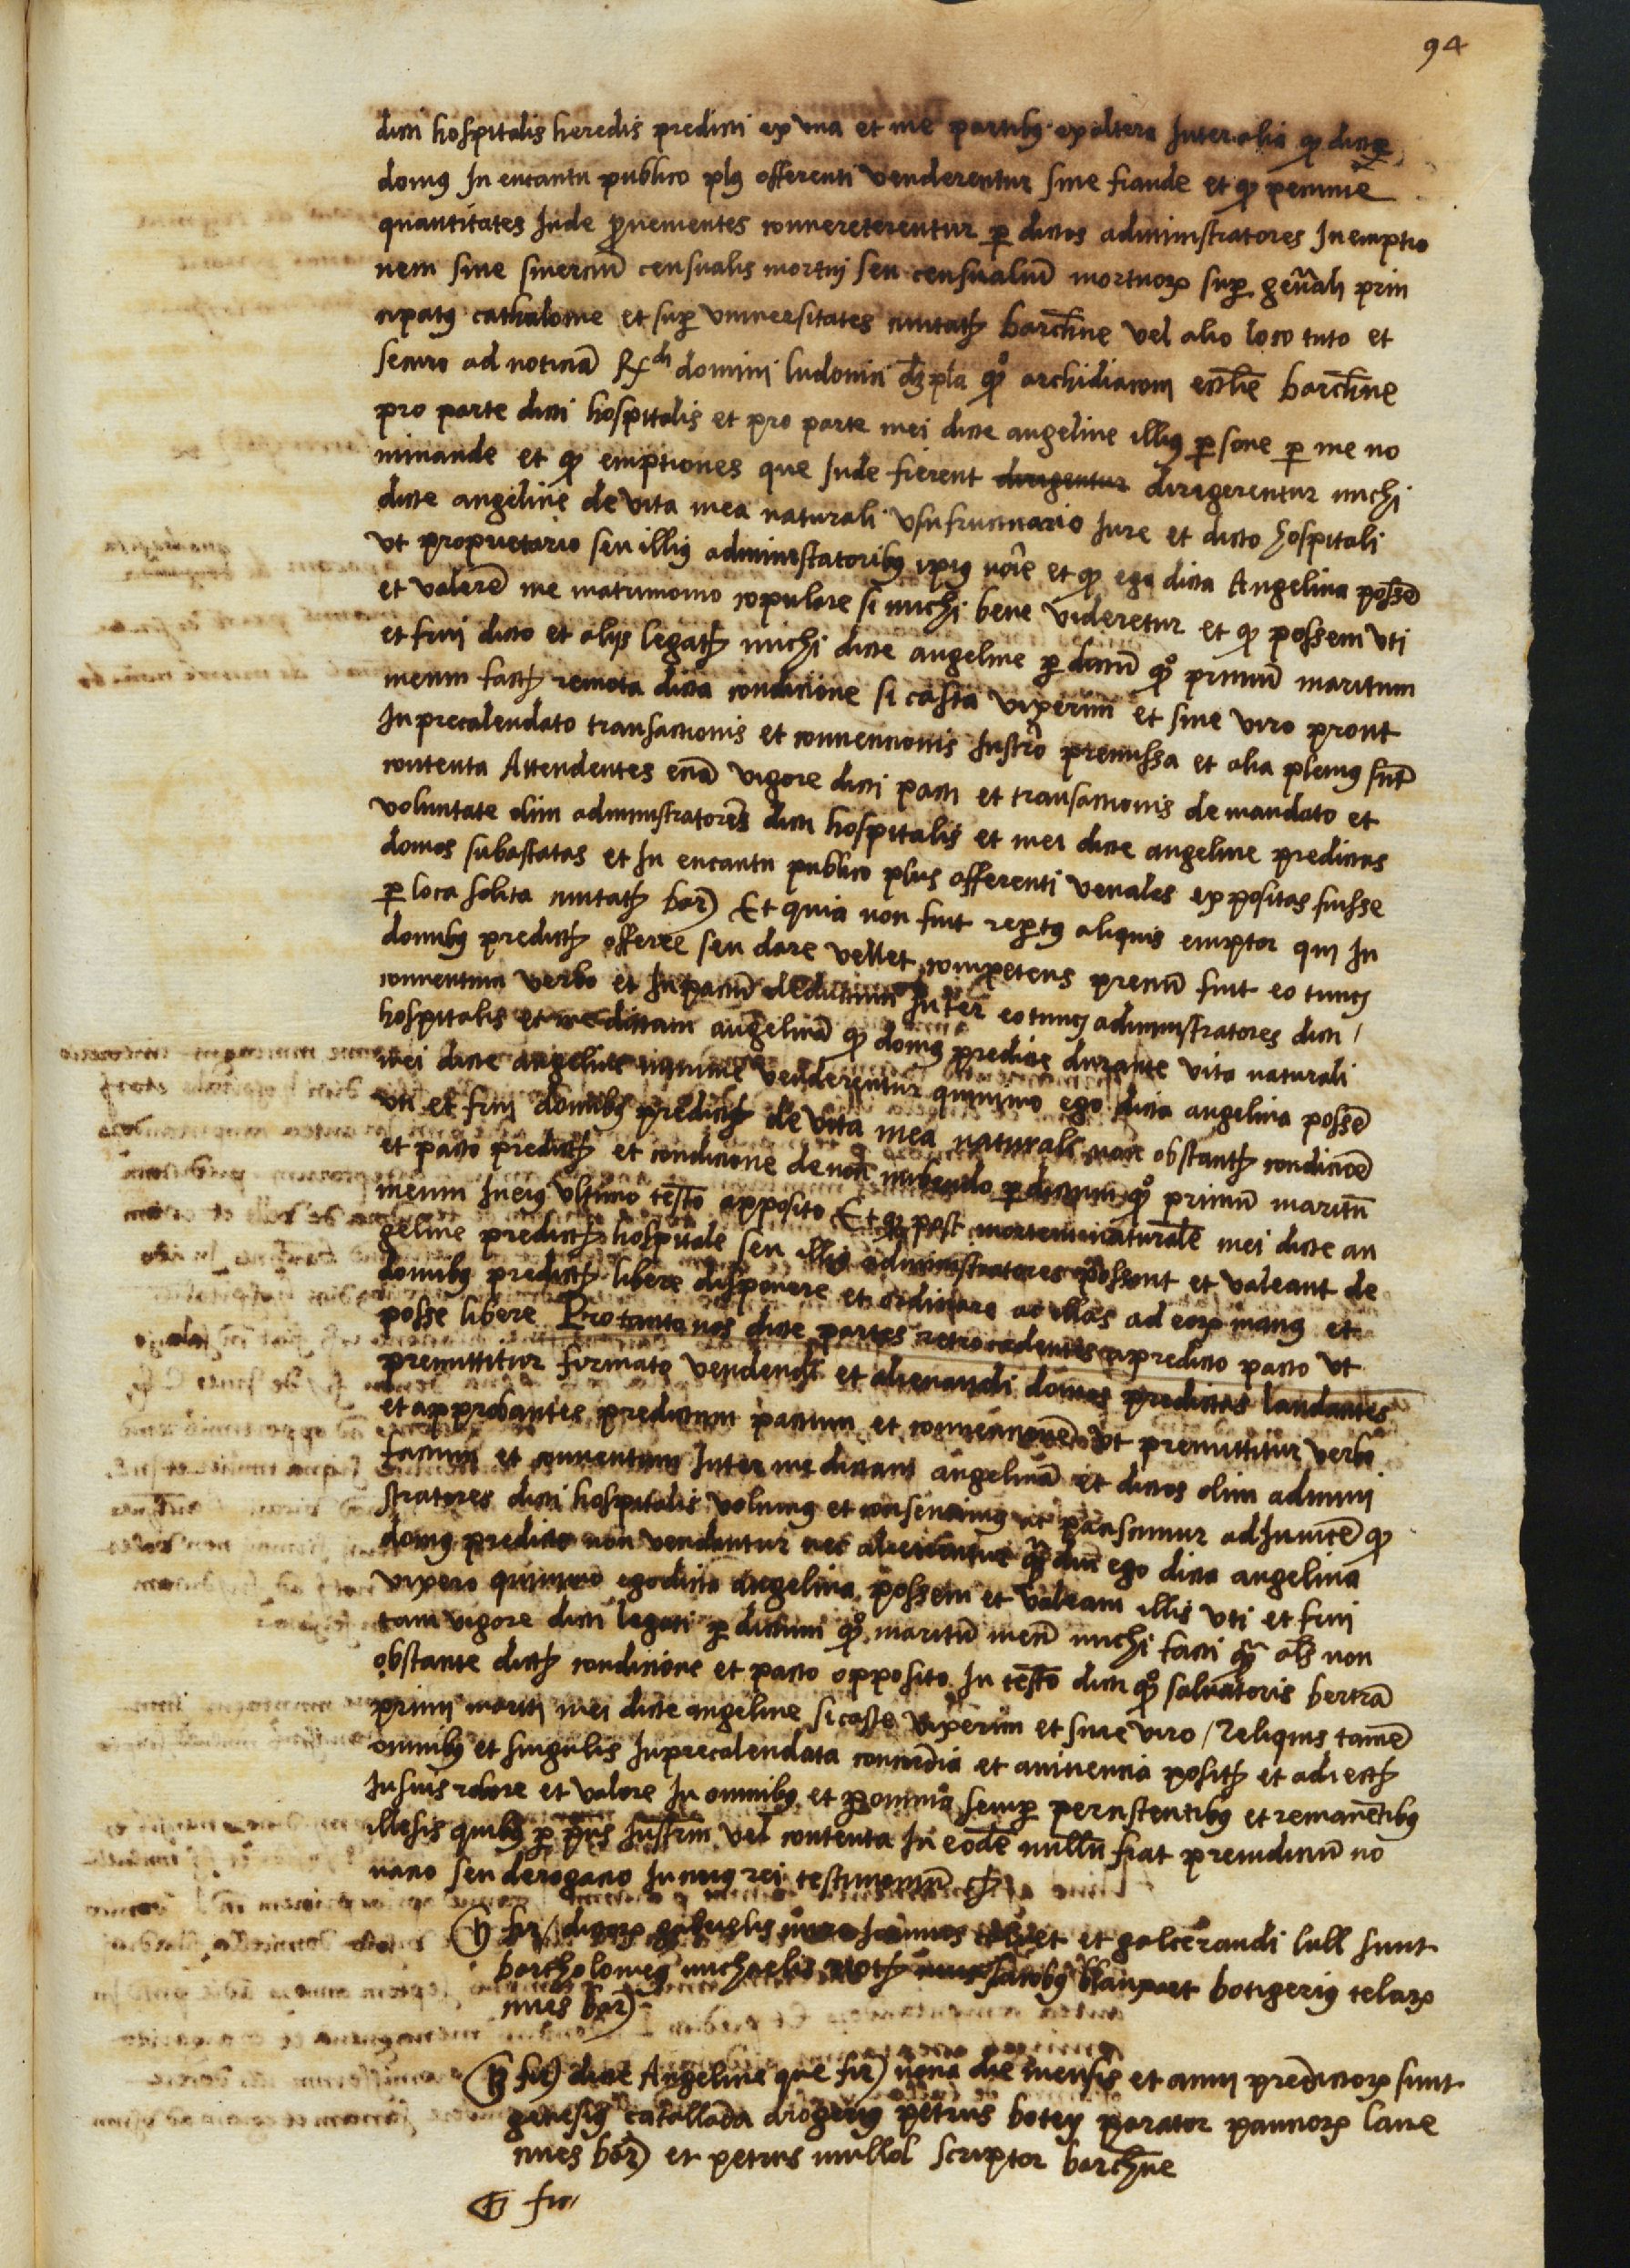 94
dicti hospitalis heredis predicti ex una et me partibus ex altera Inter alia q dicte
domus In encantu publico plus offerenti venderentur sine fraude et q pecunie
quantitates Inde provenientes converterentur per dictos administratores In emptio
nem sive smerciũ censualis mortui seu censualiũ mortuorum super generali prin
cipatus cathalonie et super universitates civitatis barchne vel alio loco tuto et
securo ad noticiã Rdi domini ludovici dez pla qo archidiaconi ecclie barchne
pro parte dicti hospitalis et pro parte mei dicte angeline illius persone per me no
minande et q emptiones que Inde fierent dirigentur dirigerentur michi
dicte angeline de vita mea naturali usufructuario Iure et dicto hospitali
ut proprietario seu illius administratoribus ipius noie et q ego dicta Angelina possẽ
et valerẽ me matrimonio copulare si michi bene videretur et q possem uti
et frui dicto et alijs legatis michi dicte angeline per dictũ qo primũ maritum
meum factis remota dicta condicione si casta vixerim et sine viro prout
In precalendato transactionis et convencionis Instro premissa et alia plenius sunt
contenta Attendentes eciã vigore dicti pacti et transactionis de mandato et
voluntate olim administratores dicti hospitalis et mei dicte angeline predictas
domos subastatas et In encantu publico plus offerenti venales expositas fuisse
per loca solita civitatis bar) Et quia non fuit repertus aliquis emptor qui In
domibus predictis offerre seu dare vellet competens preciũ fuit eo tunc
conventum verbo et In pactũ deductum Inter eo tunc administratores dicti
hospitalis et me dictam angelinã q domus predicte durante vita naturali
mei dicte angeline minime venderentur quinimo ego dicta angelina possẽ
uti et frui domibus predictis de vita mea naturali non obstantis condicioẽ
et pacto predictis et condicione de non nubendo per dictum qo primũ maritũ
meum In eius ultimo testo apposito Et q post mortem naturalẽ mei dicte an
geline predictis hospitale seu illius administratores possent et valeant de
domibus predictis libere disponere et ordinare ac illas ad eorum manus et
posse libere Pro tanto nos dicte partes retrocedentes a predicto pacto ut
premittitur firmato vendendi et alienandi domos predictas laudantes
et approbantes predictum pactum et convencionẽ ut premittitur verbo
factum et conventum Inter me dictam angelinã et dictos olim admini
stratores dicti hospitalis volumus et consencimus ac paciscimur ad Invicẽ q
domus predicte non vendantur nec alienentur dum ego dicta angelina
vixero quinimo ego dicta angelina possem et valeam illis uti et frui
tam vigore dicti legati per dictum qo maritũ meũ michi facti als non
obstante dictis condicione et pacto opposito In testo dicti qo salvatoris bertrã
primi mariti mei dicte angeline si caste vixerim et sine viro / Reliquis tamẽ
omnibus et singulis In precalendata concordia et avinencia positis et adiectis
In suis robore et valore In omnibus et per omnia semper persistentibus et remanẽtibus
illesis quibus per pñs Instrm vel contenta In eodẽ nullũ fiat preiudiciũ no
vacio seu derogacio In cuius rei testimoniũ
fir) dictorum gabrielis et galcerandi lull sunt
bartholomeus michaelis Iacobus blanxart botigerius telarum
cives bar)
fir) dicte Angeline que fir) nona die mensis et anni predictorum sunt
genesius catallada drogerius petrus botey parator pannorum lane
cives bar) et petrus mullol scriptor barchne
fir